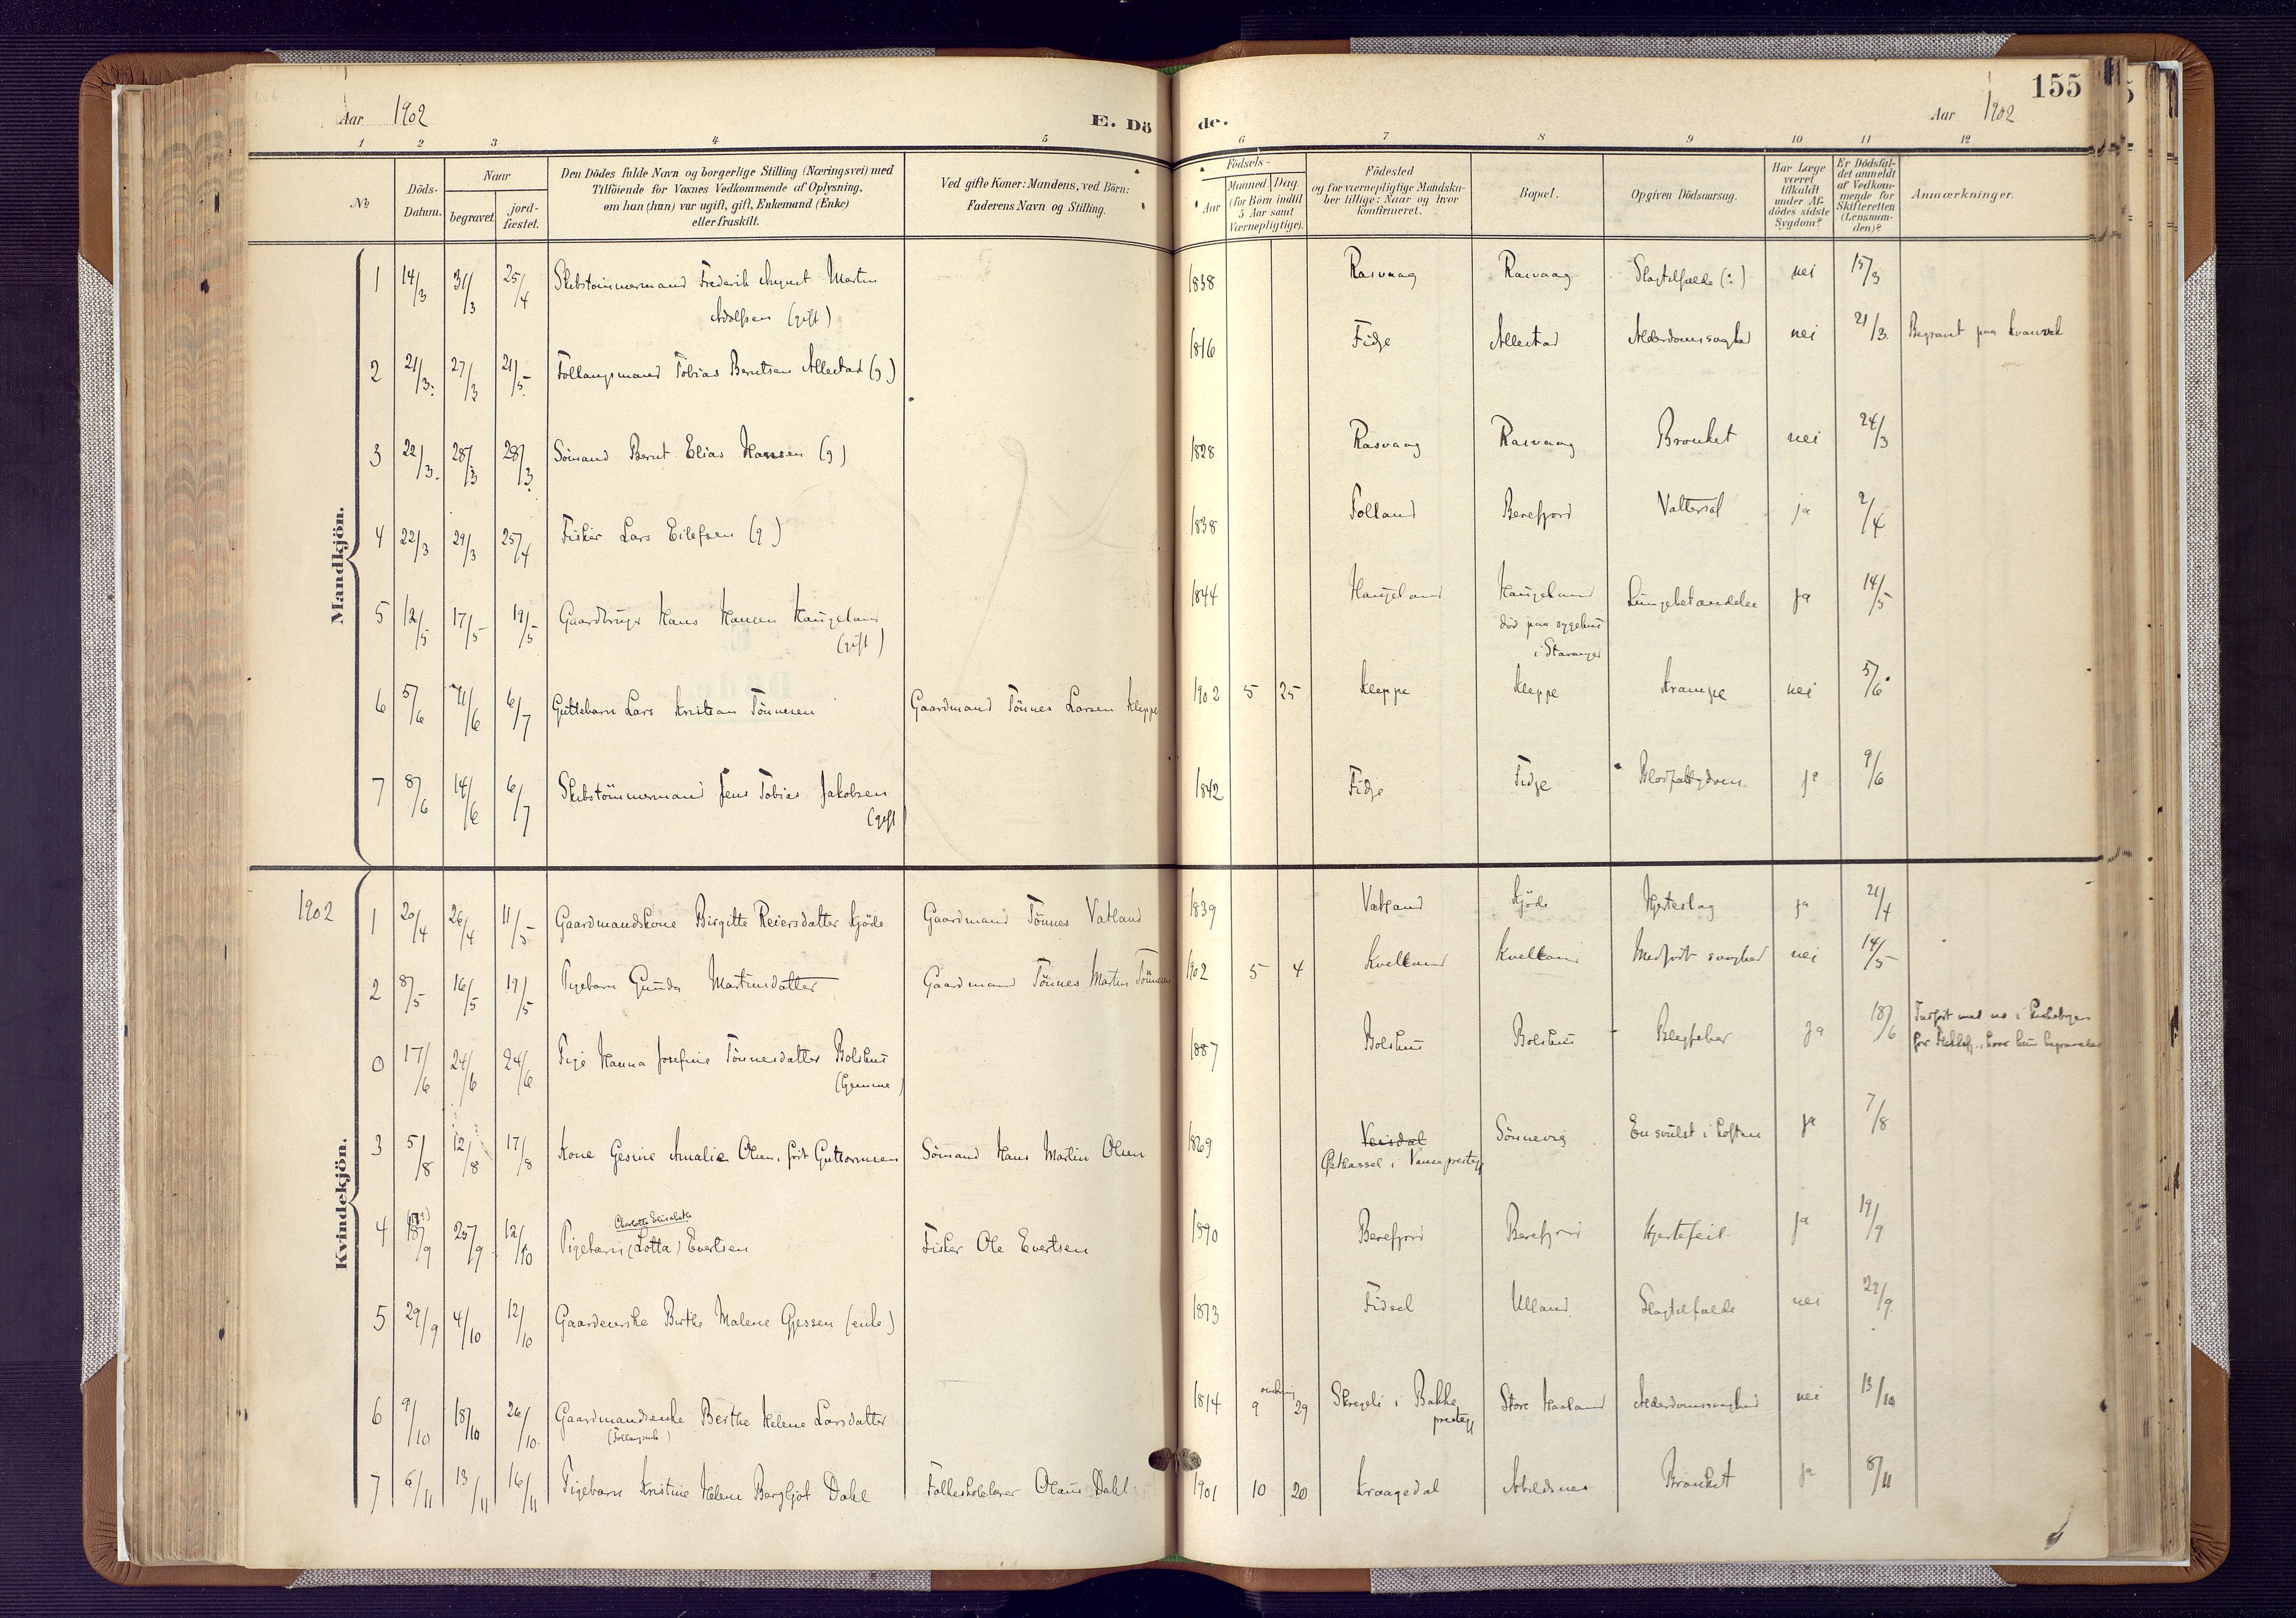 155
Aar 1902
E. Dö
de.
Aar 1902
1 2 3 4 5 6 7 8 9 10 11 12
No
Döds-
Datum.
Naar
begravet.
jord-
fæstet.
Den Dödes fulde Navn og borgerlige Stilling (Næringsvei) med
Tilföiende for Voxnes Vedkommende af Oplysning,
om han (hun) var ugift, gift, Enkemand (Enke)
eller fraskilt.
Ved gifte Koner: Mandens, ved Börn:
Faderens Navn og Stilling.
Födsels-
Aar
Maaned. Dag.
(for Börn indtil
5 Aar samt
Værnepligtige).
Födested
og for værnepligtige Mandska-
ber tillige: Naar og hvor
konfirmeret.
Bopæl.
Opgiven Dödsaarsag.
Har Læge
været
tilkaldt
under Af-
dödes sidste
Sygdom?
Er Dödsfal-
det anmeldt
af Vedkom-
mende for
Skifteretten
(Lensman-
den)?
Anmærkninger.
Mandkjön.
1 14/3 31/3 25/4 Skibstömmermand Frederik August Martin
Adolfsen (gift)
1838 Rasvaag Rasvaag Slagtilfælde nei 15/3
2 21/3. 27/3 21/5 Follaugsmand Tobias Berntsen Allestad (g)
1816 Fidje Allestad Alderdomssvaghed nei 21/3. Begravet paa
3 22/3. 28/3 28/3 Sömand Bernt Elias Hansen (g)
1828 Rasvaag Rasvaag Bronkit nei 24/3
4 22/3 29/3 25/4 Fisker Lars Eilefsen (g)
1838 Folland Berefjord Vattersot ja 2/4
5 12/5 17/5 19/5 Gaardbruger Hans Hansen Haugeland
(gift)
1844 Haugeland Haugeland Lungebetændelse ja 14/5
död paa sygehus
i Stavanger
6 5/6 11/6 6/7 Guttebarn Lars Kristian Tönnesen Gaardmand Tönnes Larsen Kleppe 1902 5 25 Kleppe Kleppe Krampe nei 5/6
7 8/6 14/6 6/7 Skibstömmermand Jens Tobias Jakobsen
(gift)
1842 Fidje Fidje ja 9/6
Kvindekjön.
1902
1 20/4 26/4 11/5 Gaardmandskone Birgitte Reiersdatter Gjöde Gaardmand Tönnes Vatland 1839 Vatland Gjöde Hjerteslag ja 21/4
2 8/5 16/5 19/5 Pigebarn Gunda Martinsdatter Gaardmand Tönnes Martin Tönnesen 1902 5 4 Kvelland Kvelland Medfödt svaghed nei 14/5
0 17/6 24/6 24/6 Pige Hanna Josefine Tönnesdatter Bolshus
1887 Bolshus Bolshus ja 18/6
3 5/8 12/8 17/8 Kone Gesine Amalie Olsen, född Guttormsen Sömand Hans Martin Olsen 1869 Sönnevig En svulst i hoften ja 7/8
i Vanse prestegj
4 18/9 25/9 12/10 Pigebarn (Lotta) Evertsen
Charlotte Elisabeth
Fisker Ole Evertsen 1890 Berefjord Berefjord Hjertefeil ja 19/9
5 29/9 4/10 12/10 Birthe Malene Gjessen (enke)
1873 Fidsel Ulland Slagtilfælde nei 22/9
6 9/10 18/10 26/10. Gaardmandsenke Berthe Helene Larsdatter
1814 9 29 Skregeli i Bakke
prestegj
Store Haaland Alderdomssvaghed nei 13/10
7 6/11 13/11 16/11 Pigebarn Kristine Helene Bergljot Dahl Folkeskolelærer Olaus Dahl 1901 10 20 Kraagedal Abelsnes Bronkit ja 8/11